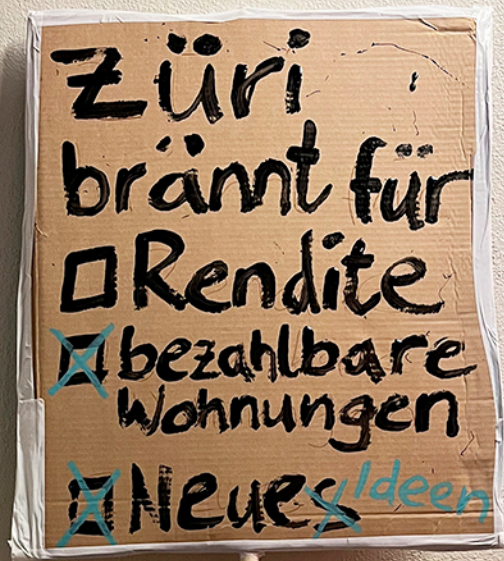 Züri
brännt für
Rendite
bezahlbare
Wohnungen
Neues Ideen